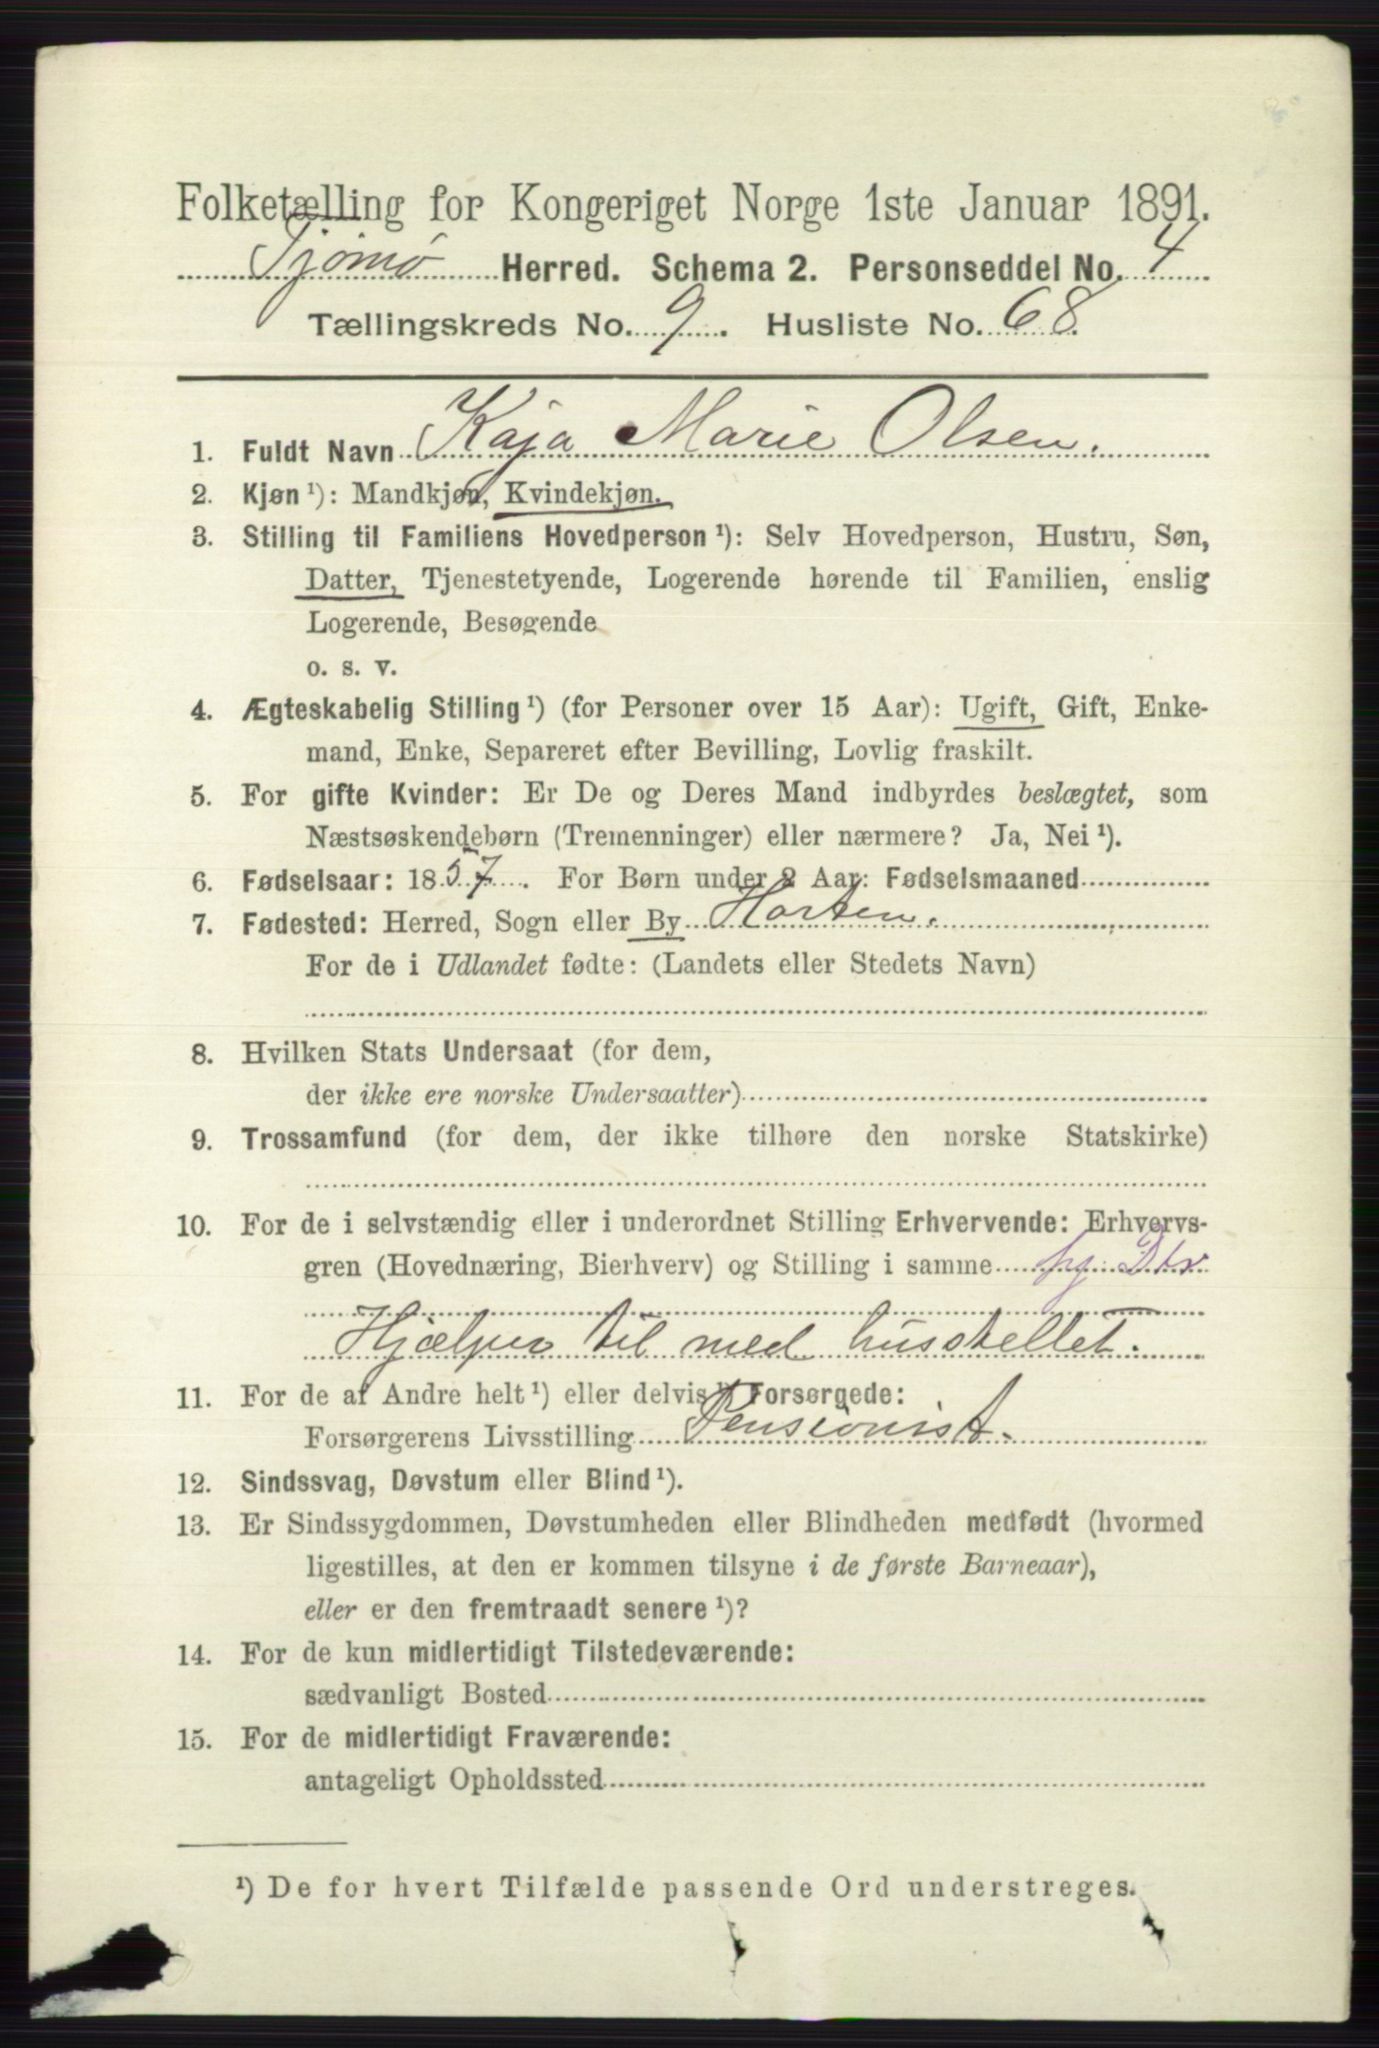 Folketælling for Kongeriget Norge 1ste Januar 1891.
Tjømø Herred. Schema 2. Personseddel No. 4
Tællingskreds No. 9. Husliste No. 68.
1. Fuldt Navn Kaja Marie Olsen.
2. Kjøn ¹): Mandkjøn, Kvindekjøn.
3. Stilling til Familiens Hovedperson ¹): Selv Hovedperson, Hustru, Søn,
Datter, Tjenestetyende, Logerende hørende til Familien, enslig
Logerende, Besøgende
o. s. v.
4. Ægteskabelig Stilling ¹) (for Personer over 15 Aar): Ugift, Gift, Enke-
mand, Enke, Separeret efter Bevilling, Lovlig fraskilt.
5. For gifte Kvinder: Er De og Deres Mand indbyrdes beslægtet, som
Næstsøskendebørn (Tremenninger) eller nærmere? Ja, Nei ¹).
6. Fødselsaar: 1857. For Børn under 2 Aar: Fødselsmaaned
7. Fødested: Herred, Sogn eller By Horten.
For de i Udlandet fødte: (Landets eller Stedets Navn)
8. Hvilken Stats Undersaat (for dem,
der ikke ere norske Undersaatter)
9. Trossamfund (for dem, der ikke tilhøre den norske Statskirke)
10. For de i selvstændig eller i underordnet Stilling Erhvervende: Erhvervs-
gren (Hovednæring, Bierhverv) og Stilling i samme hg. Dtr
Hjælper til med husstellet.
11. For de af Andre helt ¹) eller delvis ¹) Forsørgede:
Forsørgerens Livsstilling Pensionist.
12. Sindssvag, Døvstum eller Blind ¹).
13. Er Sindssygdommen, Døvstumheden eller Blindheden medfødt (hvormed
ligestilles, at den er kommen tilsyne i de første Barneaar),
eller er den fremtraadt senere ¹)?
14. For de kun midlertidigt Tilstedeværende:
sædvanligt Bosted
15. For de midlertidigt Fraværende:
antageligt Opholdssted
¹) De for hvert Tilfælde passende Ord understreges.